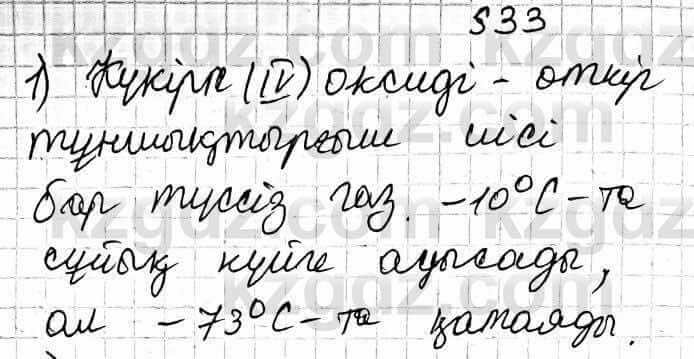 §33
1) Күкірт (IV) оксиді - өткір
тұншықтырғыш иісі
бар түссіз газ. -10°C-та
сұйық күйге ауысады,
ал -73°C-та қатаяды.